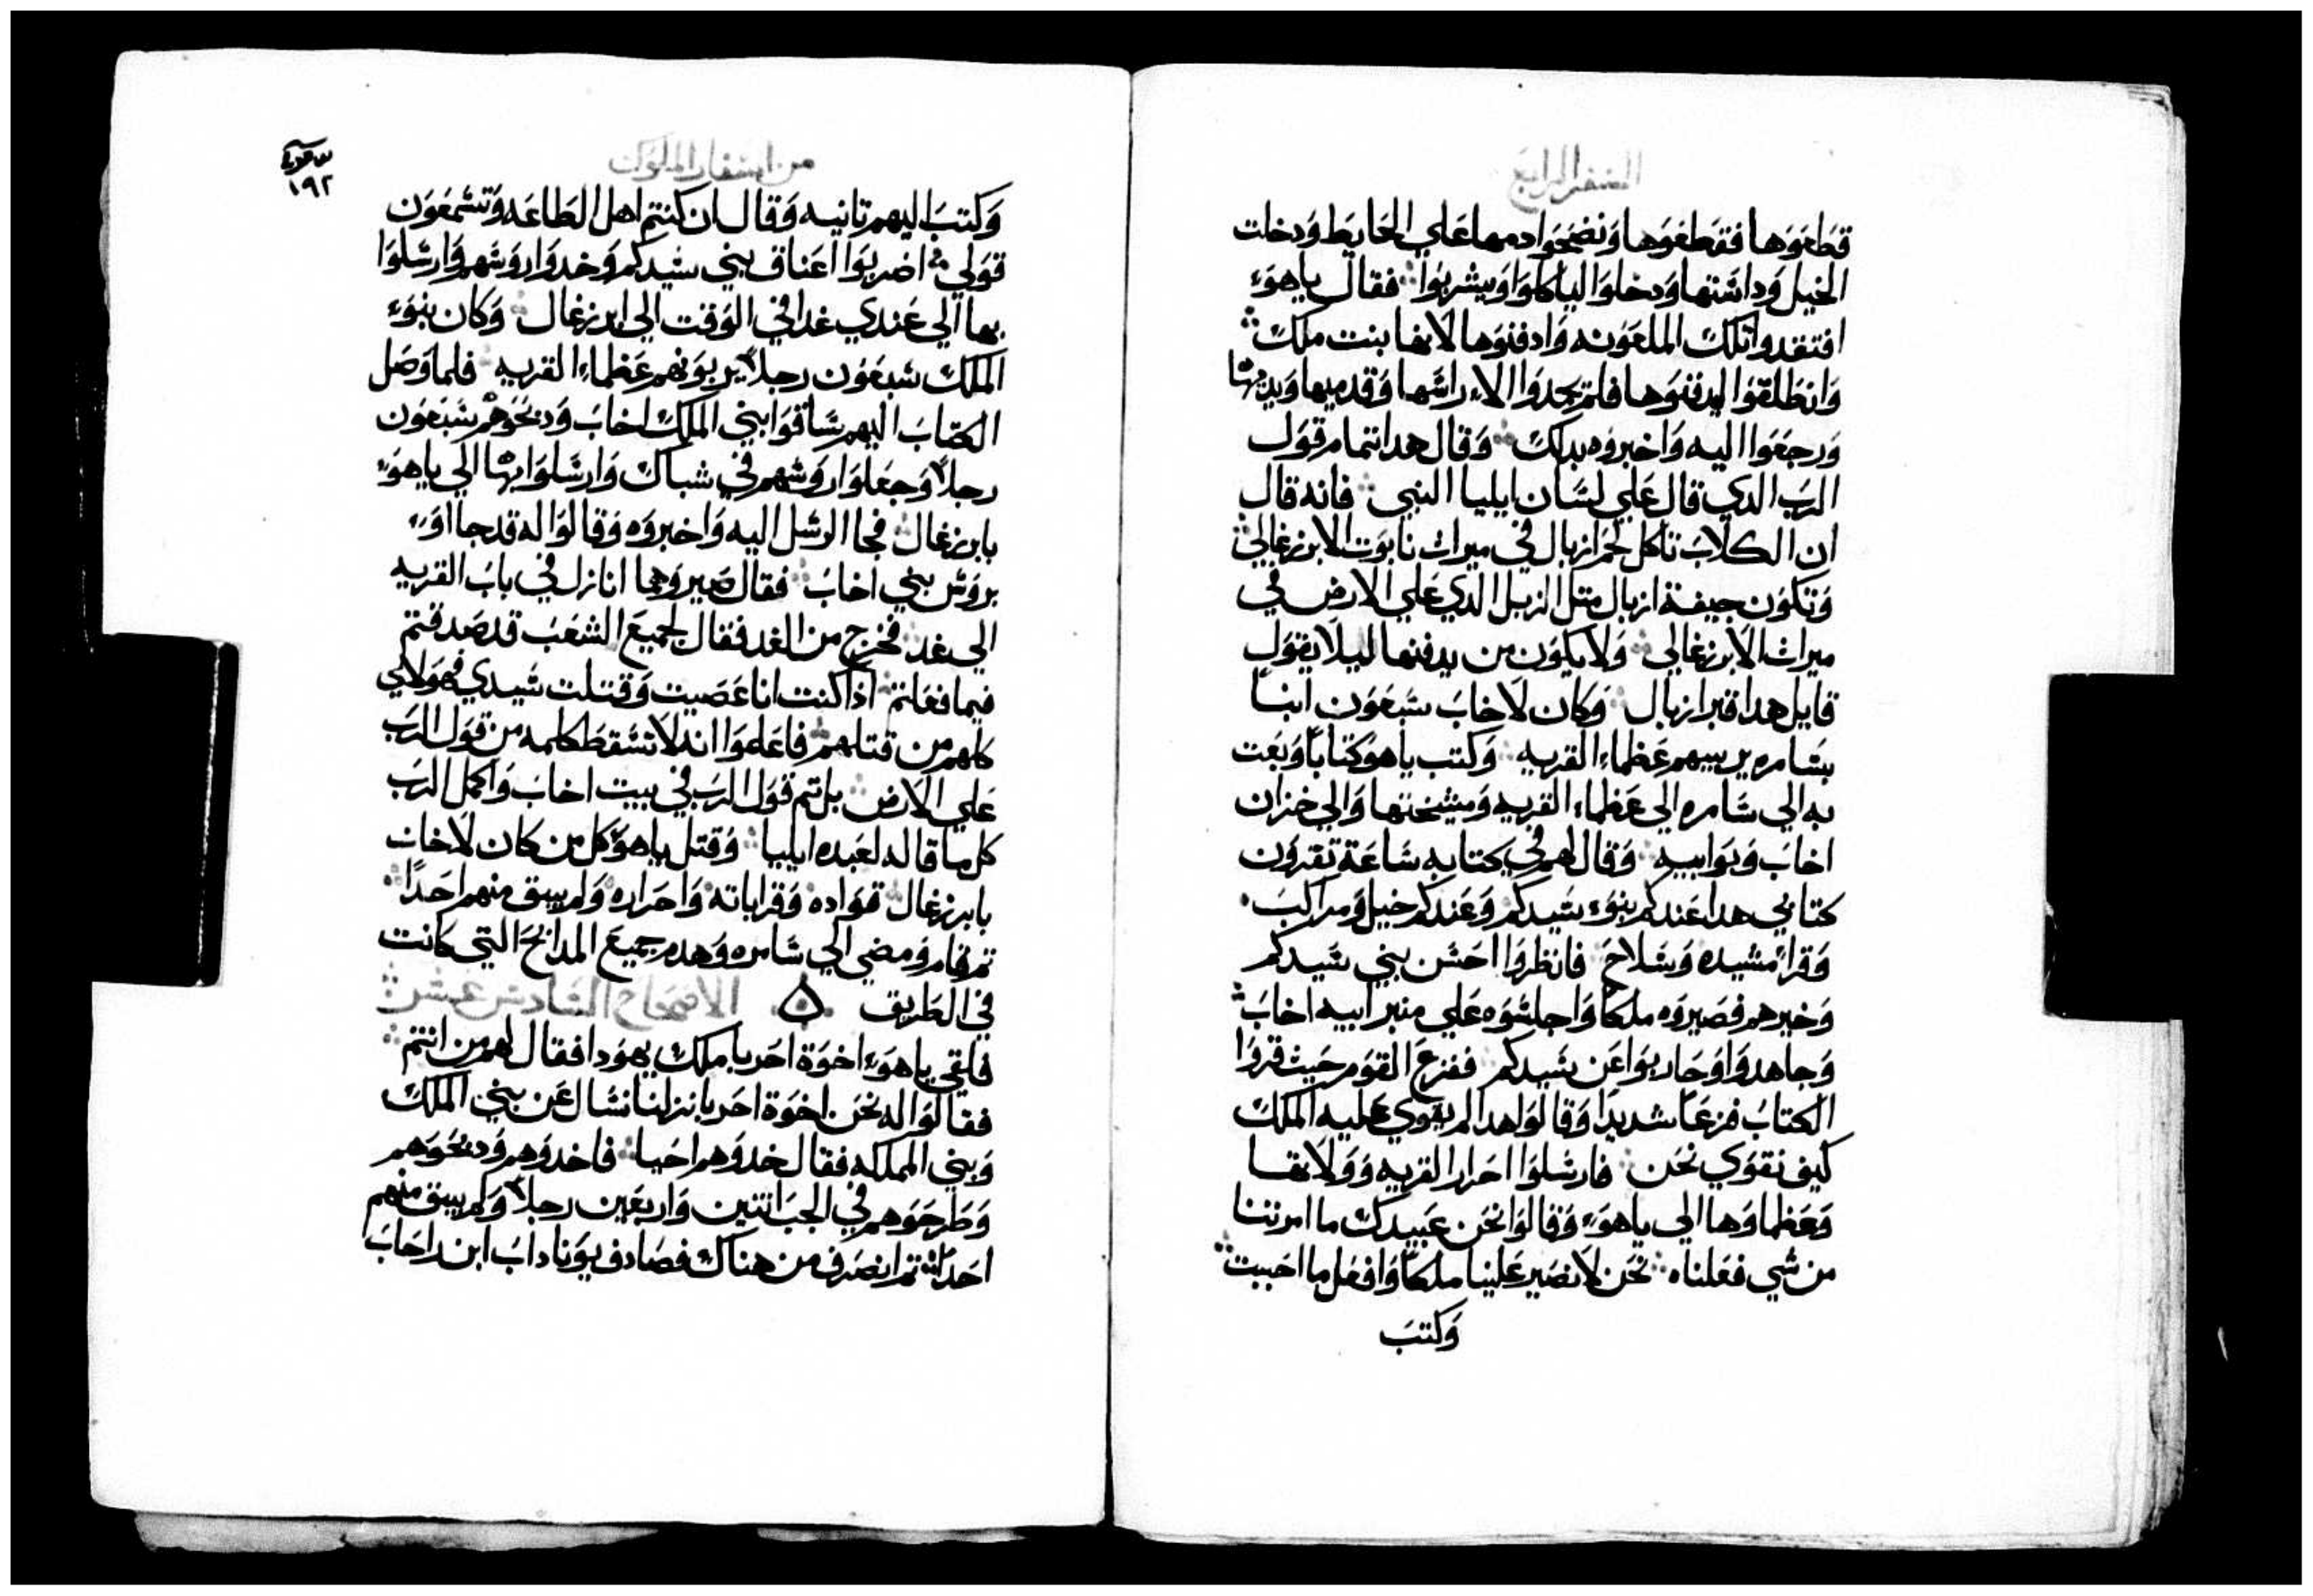 السفر الرابع
قطعوها فقطعوها ونضحوا دمها علي الحايط ودخلت
الخيل وداستها ودخلوا لياكلوا ويشربوا فقال ياهوء
افتقدوا تلك الملعونه وادفنوها لانها بنت ملك
وانطلقوا ليدفنوها فلم يجدوا الاء راسها وقدميها ويديها
ورجعوا اليه واخبروه بدلك وقال هدا تمام قول
الرب الدي قال علي لسان ايليا النبي فانه قال
ان الكلاب تاكل لحم ازبال في ميرات نابوت الايزرغالي
وتكون جيفة ازبال متل الزبل الدي علي الارض في
ميراث الايزرغالي ولا يكون من يدفنها ليلا يقول
قايل هدا قبر ازبال وكان لاخاب سبعون ابنا
بسامره يربيهم عظماء القريه وكتب ياهو كتابا وبعت
به الي سامره الي عظماء القريه ومشيختها والي خزان
اخاب وبوابيه وقال لهم في كتابه ساعة تقرون
كتابي هدا عندكم بنوء سيدكم وعندكم خيل ومراكب
وقراء مشيده وسلاح فانظروا احسن بني سيدكم
وخيرهم فصيروه ملكا واجلسوه علي منبر ابيه اخاب
وجاهدوا وحاربوا عن سيدكم ففزع القوم حيث قروا
الكتاب فزعا شديدا وقالوا هدا لم يقوي عليه الملك
كيف نقوي نحن فارسلوا احرار القريه وولاتها
وعظماوها الي ياهوء وقالوا نحن عبيدك ما امرتنا
من شي فعلناه نحن لا نصير علينا ملكا وافعل ما احببت
وكتب
من اسفار الملوك
١٩٢
وكتب اليهم تانيه وقال ان كنتم اهل الطاعه وتسمعون
قولي اضربوا اعناق بني سيدكم وخدوا روسهم وارسلوا
بها الي عندي غدا في الوقت الي ايزرغال وكان بنوء
الملك سبعون رجلا يربونهم عظماء القريه فلما وصل
الكتاب اليهم ساقوا بني الملك اخاب ودبحوهم سبعون
رجلا وجعلوا روسهم في شباك وارسلوا بها الي ياهوء
بايزرغال فجا الرسل اليه واخبروه وقالوا له قد جااوء
بروس بني اخاب فقال صيروهما انازل في باب القريه
الي غد فخرج من الغد فقال لجميع الشعب قد صدقتم
فيما فعلتم اذا كنت انا عصيت وقتلت سيدي فهولاي
كلهم من قتلهم فاعلموا انه لا تسقط كلمه من قول الرب
علي الارض بل تم قول الرب في بيت اخاب واكمل الرب
كل ما قاله لعبده ايليا وقتل ياهو كل من كان لاخاب
بايزرغال قواده وقراباته واحراره ولم يبق منهم احدا
تم قام ومضي الي سامره وهدم جميع المدابح التي كانت
في الطريق الاصحاح السادس عشر
فلقي ياهوء اخوة احزيا ملك يهودا فقال لهم من انتم
فقالوا له نحن اخوة احزيا نزلنا نسال عن بني الملك
وبني المملكه فقال خدوهم احيا فاخدوهم ودبحوهم
وطرحوهم في الجب اتنين واربعين رجلا ولم يبق منهم
احدا تم انصرف من هناك فصادف يوناداب ابن راحاب